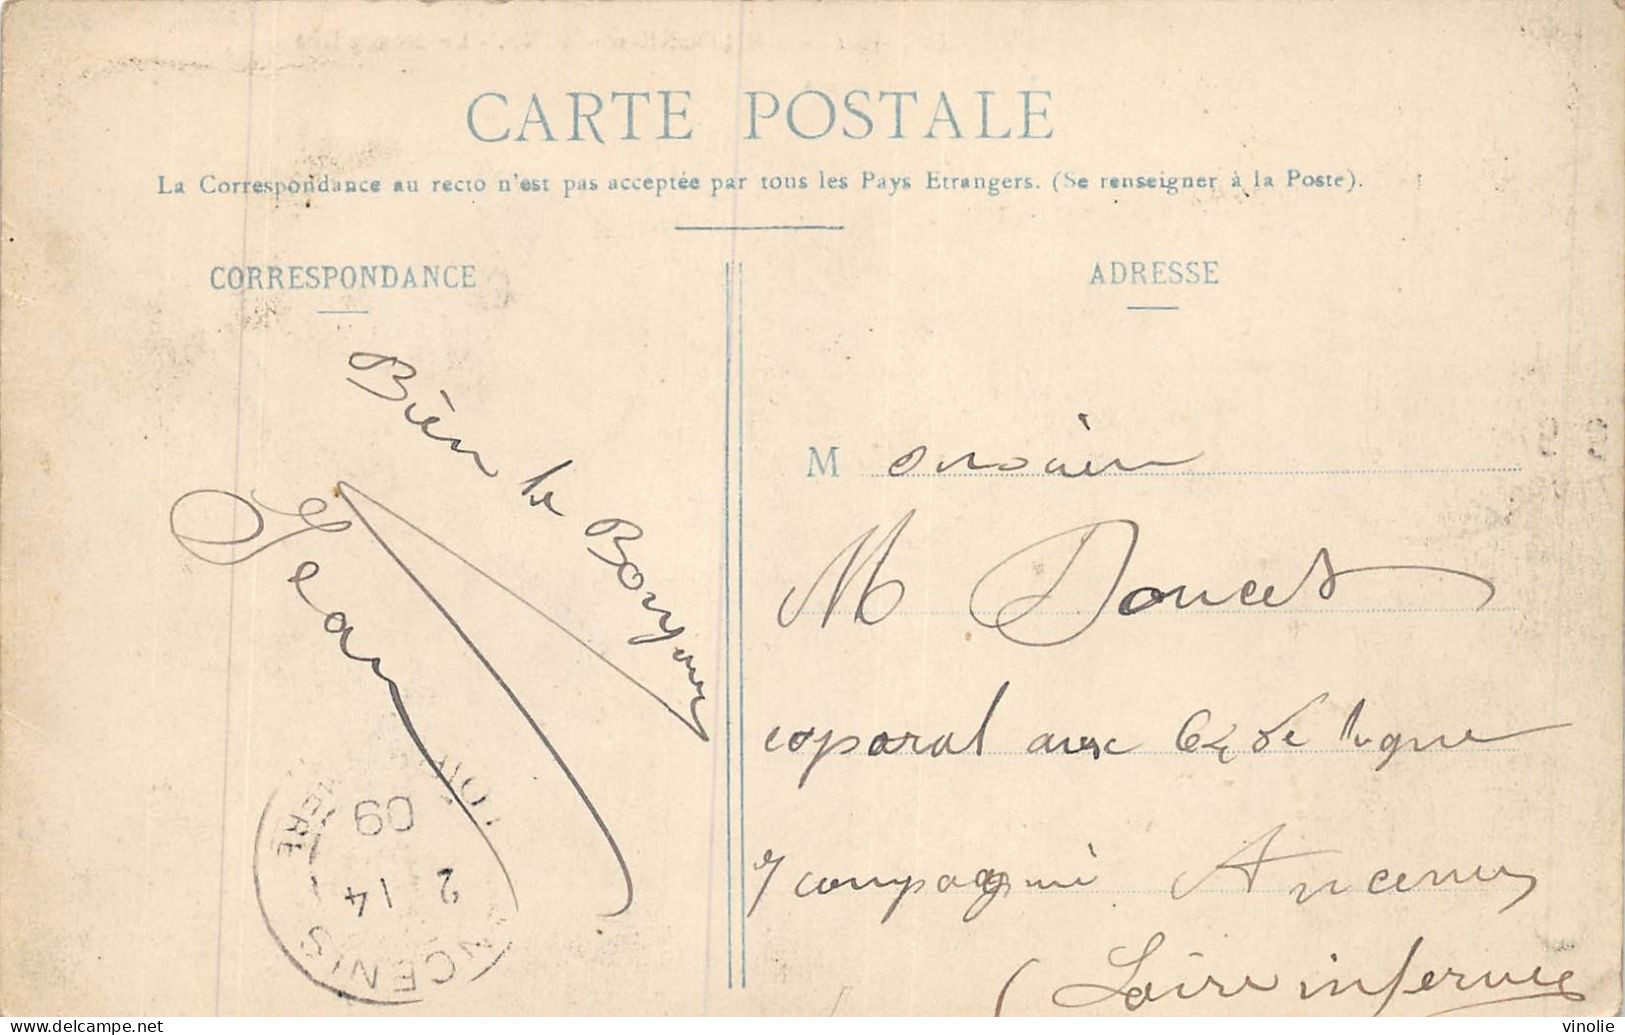 CARTE POSTALE
La Correspondance au recto n'est pas acceptée par tous les Pays Etrangers. (Se renseigner à la Poste).
CORRESPONDANCE
ADRESSE
Bien le Bonjour
Jean
M onsieur
M Doucet
coporal aux 64 de ligne
7 compagnie Ancenis
(Loire inferieure
ANCENIS
2 14
09
delcampe.net
vinolie